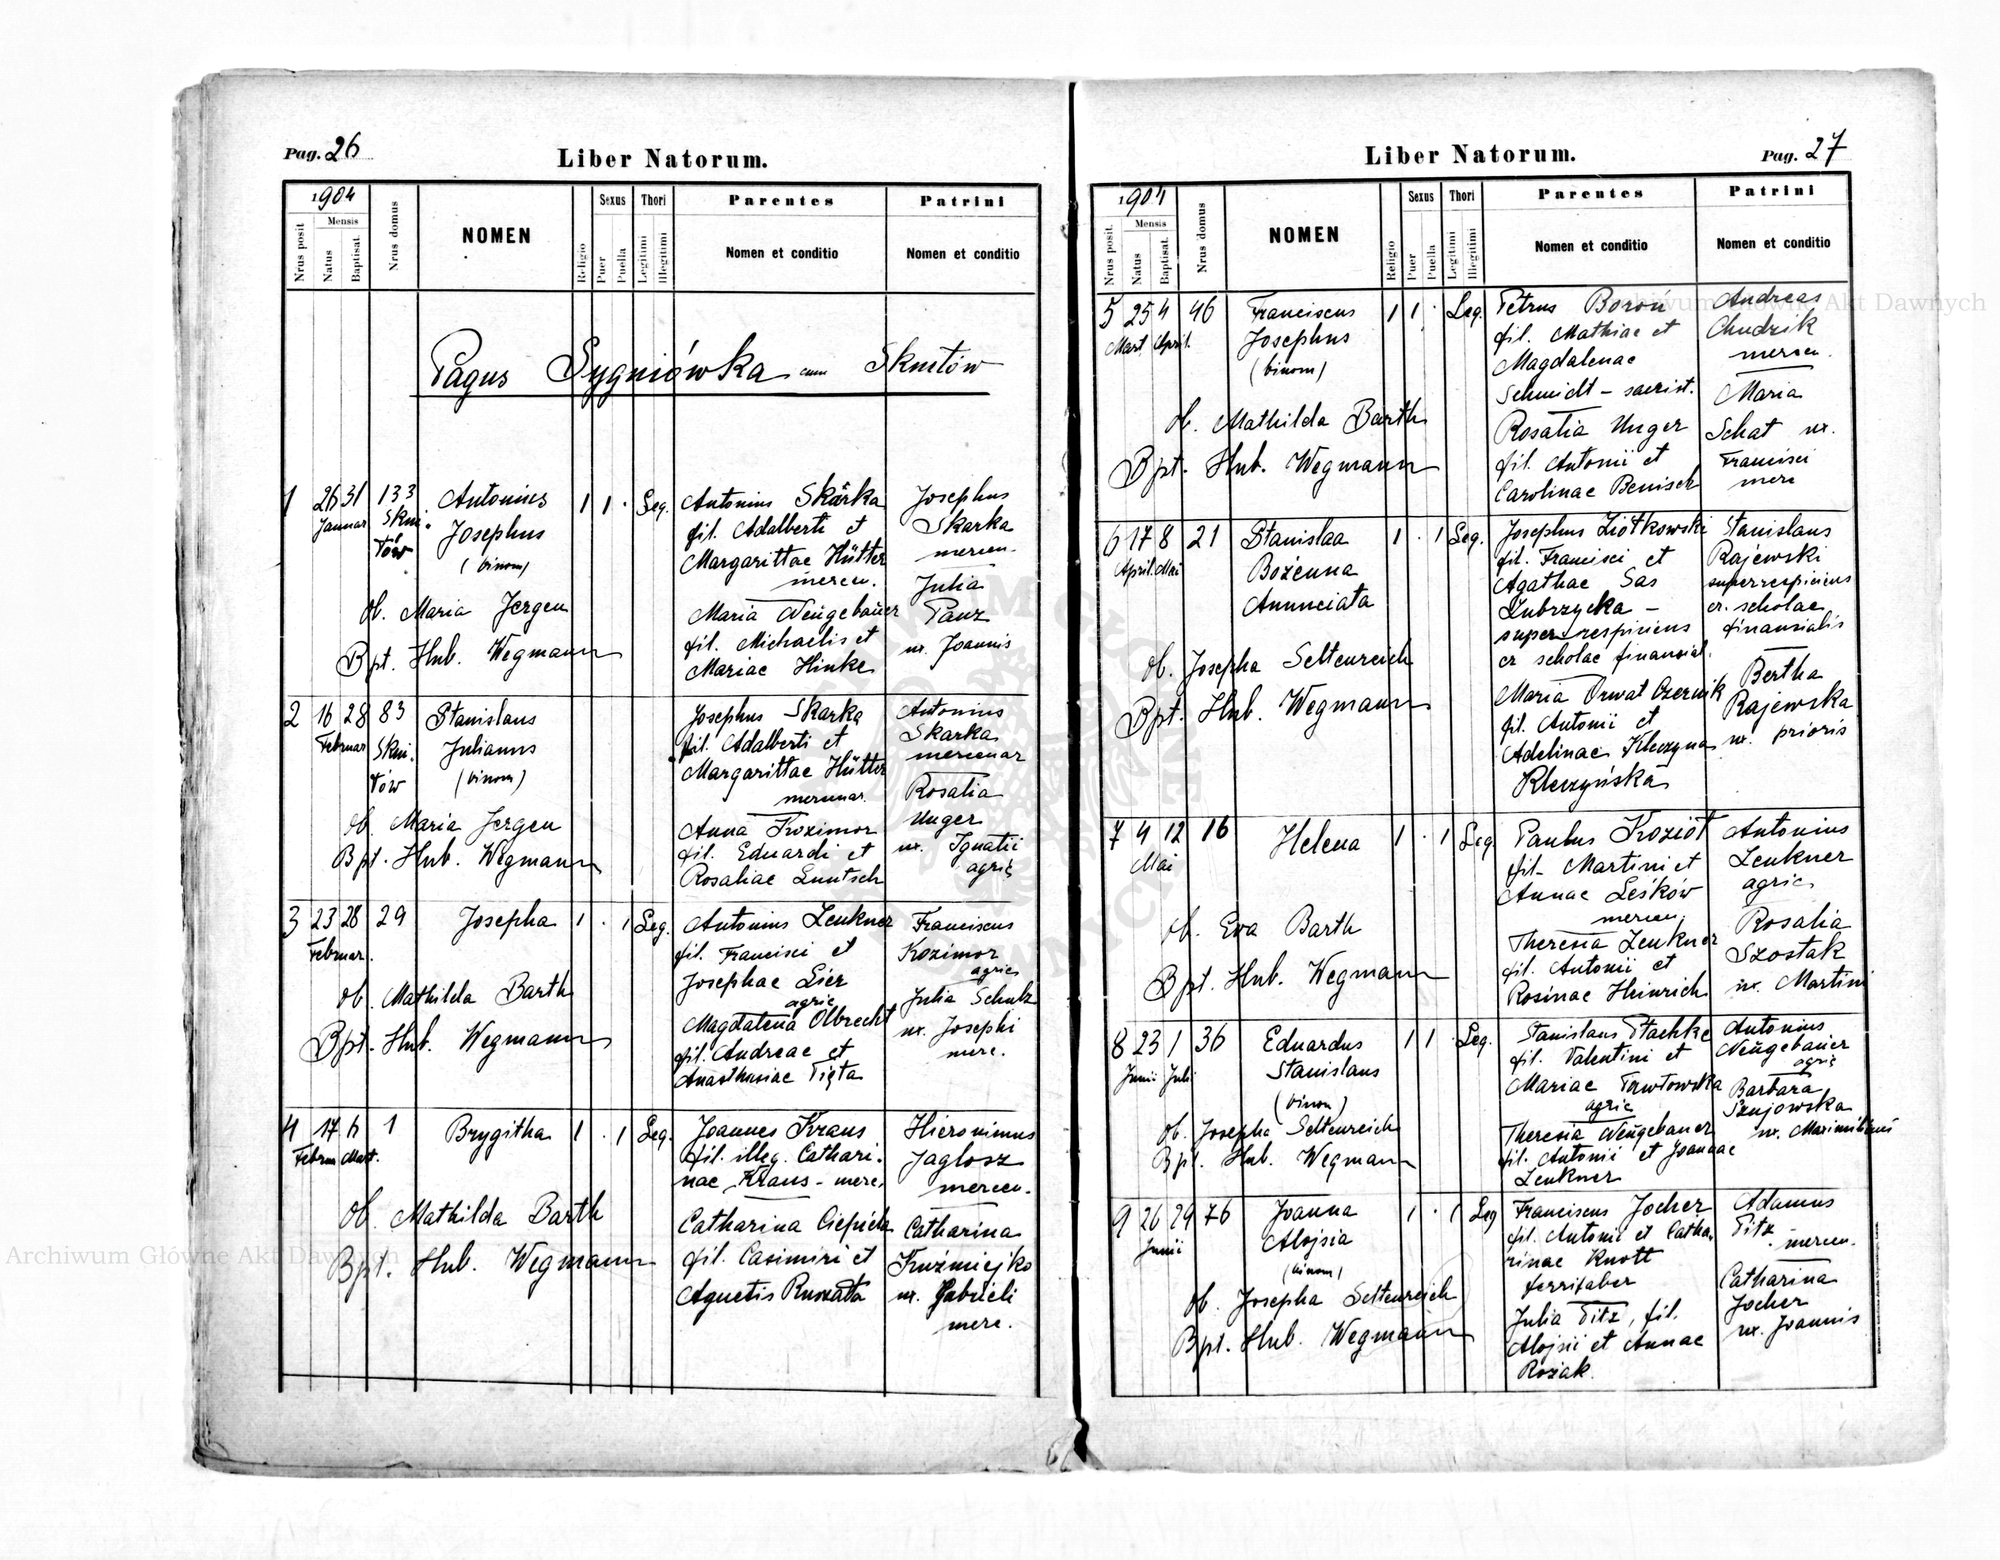 Pag. 26
Liber Natorum.
1904
Mensis
Nrus posit.
Natus
Baptisat.
Nrus domus
NOMEN
Religio
Sexus
Puer
Puella
Thori
Legitimi
Illegitimi
Parentes
Nomen et conditio
Patrini
Nomen et conditio
Pagus Sygniówka cum Skniłów
1 26 31 133 Antonius 1 1 · Leg.
Januar Skni-
łów
Josephus
(binom)
Ob. Maria Jergen
Bpt. Hub. Wegmann
Antonius Skarka
fil. Adalberti et
Margarittae Hütter
mercen.
Maria Neugebauer
fil. Michaelis et
Mariae Hinke
Josephus
Skarka
mercen.
Julia
Panz
ux. Joannis
2 16 28 83 Stanislaus
Februar Skni-
łów
Julianus
(binom)
Ob. Maria Jergen
Bpt. Hub. Wegmann
Josephus Skarka
fil. Adalberti et
Margarittae Hütter
mercenar.
Anna Kozimor
fil. Eduardi et
Rosaliae Luntsch
Antonius
Skarka
mercenar
Rosalia
Unger
ux. Ignatii
agric.
3 23 28 29 Josepha 1 · 1 Leg.
Februar.
Ob. Mathilda Barth
Bpt. Hub. Wegmann
Antonius Lenkner
fil. Francisci et
Josephae Lier
agric.
Magdalena Olbrecht
fil. Andreae et
Anasthasiae Pięta
Franciscus
Kozimor
agric.
Julia Schulz
ux. Josephi
merc.
4 17 6 1 Brygitha 1 · 1 Leg.
Februar Mart.
Ob. Mathilda Barth
Bpt. Hub. Wegmann
Joannes Kraus
fil. illeg. Cathari-
nae Kraus - merc.
Catharina
fil. Casimiri et
Agnetis
Hieronimus
Jaglosz
mercen.
Catharina
Kuźmiejko
ux. Gabrieli
merc.
Liber Natorum.
Pag. 27
1904
Mensis
Nrus posit.
Natus
Baptisat.
Nrus domus
NOMEN
Religio
Sexus
Puer
Puella
Thori
Legitimi
Illegitimi
Parentes
Nomen et conditio
Patrini
Nomen et conditio
5 25 4 46 Franciscus 1 1 · Leg.
Mart April.
Josephus
(binom)
Ob. Mathilda Barth
Bpt. Hub. Wegmann
Petrus Boroń
fil. Mathiae et
Magdalenae
Schmidt - sacrist.
Rosalia Unger
fil. Antonii et
Carolinae Benisch
Andreas
Chudzik
mercen.
Maria
Schat ux.
Francisci
merc
6 17 8 21 Stanislaa 1 · 1 Leg.
April. Mai
Bożenna
Anunciata
Ob. Josepha Seltenreich
Bpt. Hub. Wegmann
Josephus Ziółkowski
fil. Francisci et
Agathae Sas
Zubrzycka -
super respiciens
cr scholae finansial.
Maria Orwat Czernik
fil. Antonii et
Adelinae
Kleczyńska
Stanislaus
Rajewski
superrespiciens
cr. scholae
finansialis
Bertha
Rajewska
ux. prioris
7 4 12 16 Helena 1 · 1 Leg
Mai
Ob. Eva Barth
Bpt. Hub. Wegmann
Paulus Kozioł
fil. Martini et
Annae Leśków
mercen.
Theresia Lenkner
fil. Antonii et
Rosinae Heinrich
Antonius
Lenkner
agric.
Rosalia
Szostak
ux. Martini
8 23 1 36 Eduardus 1 1 · Leg.
Junii Juli
Stanislaus
(binom)
Ob. Josepha Seltenreich
Bpt. Hub. Wegmann
Stanislaus
fil. Valentini et
Mariae Pawłowska
agric
Theresia Neugebauer
fil. Antonii et Joannae
Lenkner
Antonius
Neugebauer
agric
Barbara
Szujowska
ux. Maximiliani
9 26 29 76 Joanna 1 · 1 Leg
Junii
Alojsia
(binom)
Ob. Josepha Seltenreich
Bpt. Hub. Wegmann
Franciscus Jocher
fil. Antonii et Catha-
rinae Knott
ferrifaber
Julia Titz, fil.
Alojsii et Annae
Rosiak.
Adamus
Titz
mercen.
Catharina
Jocher
ux. Joannis
Archiwum Główne Akt Dawnych
Archiwum Główne Akt Dawnych